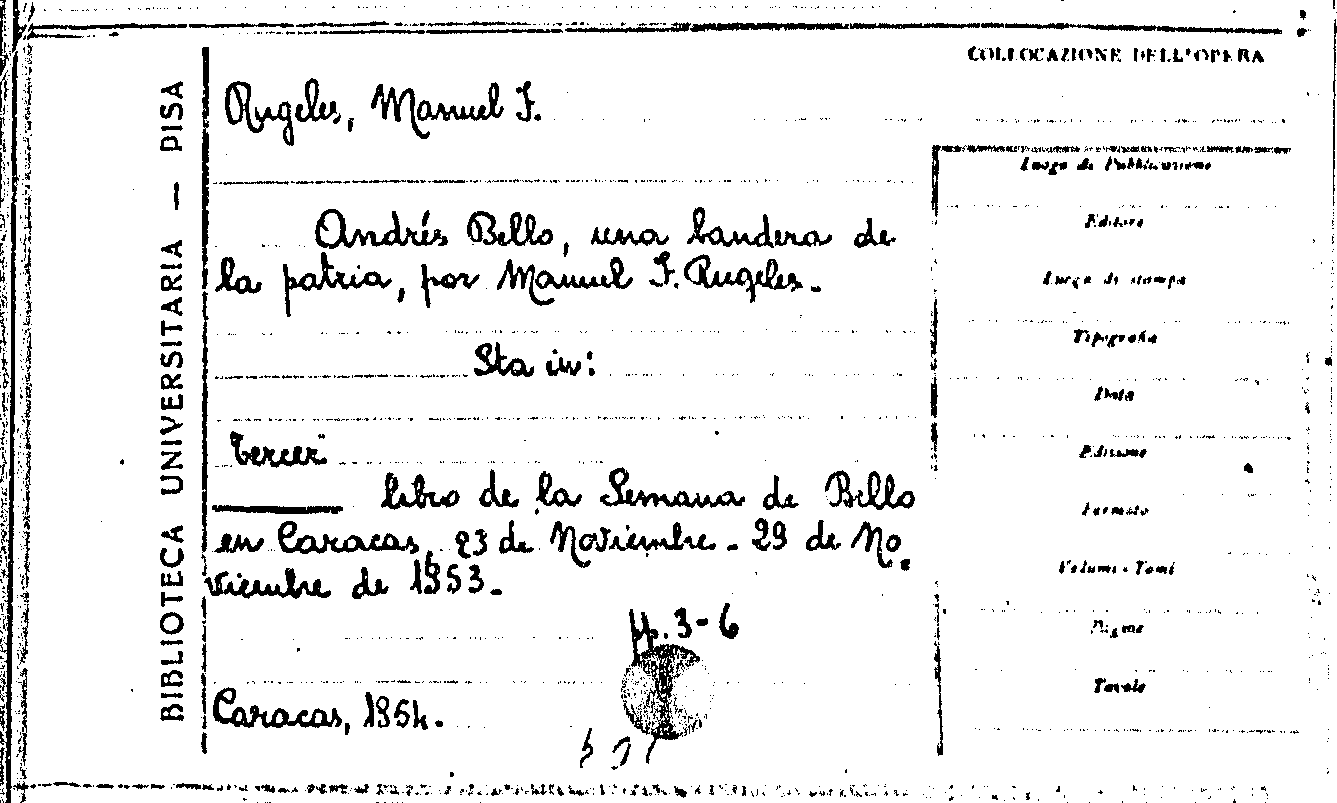 COLLOCAZIONE DELL'OPERA
BIBLIOTECA UNIVERSITARIA — PISA
Angeles, Manuel F.
Andrés Bello, una bandera de
la patria, por Manuel F. Angeles.-
Sta in:
Tercer
libro de la Semana de Bello
en Caracas, 23 de Noviembre - 29 de No-
viembre de 1953.-
pp. 3-6
Caracas, 1954.
Luogo di Pubblicazione
Editore
Luogo di stampa
Tipografia
Data
Edizione
Formato
Volumi - Tomi
Pagine
Tavole